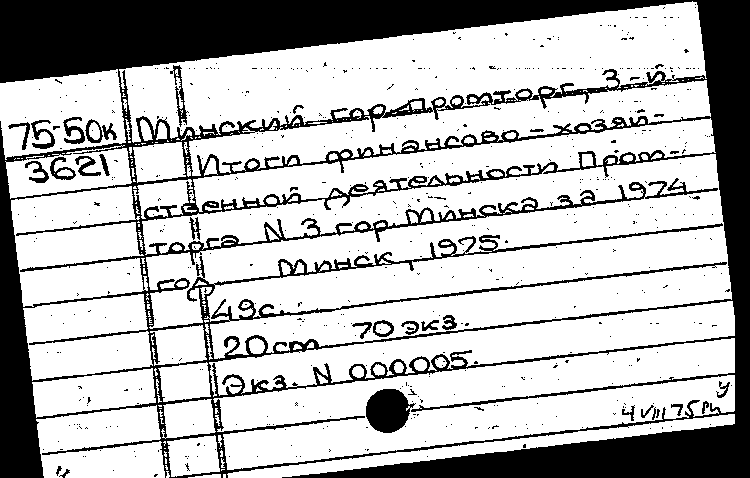 75-50к Минский гор. промторг, 3-й.
3621 Итоги финансово-хозяй-
ственной деятельности Пром-
торга N 3 гор. Минска за 1974
год Минск, 1975.
49с.
20cm 70 экз.
Экз. N 000005.
4 VIII 75